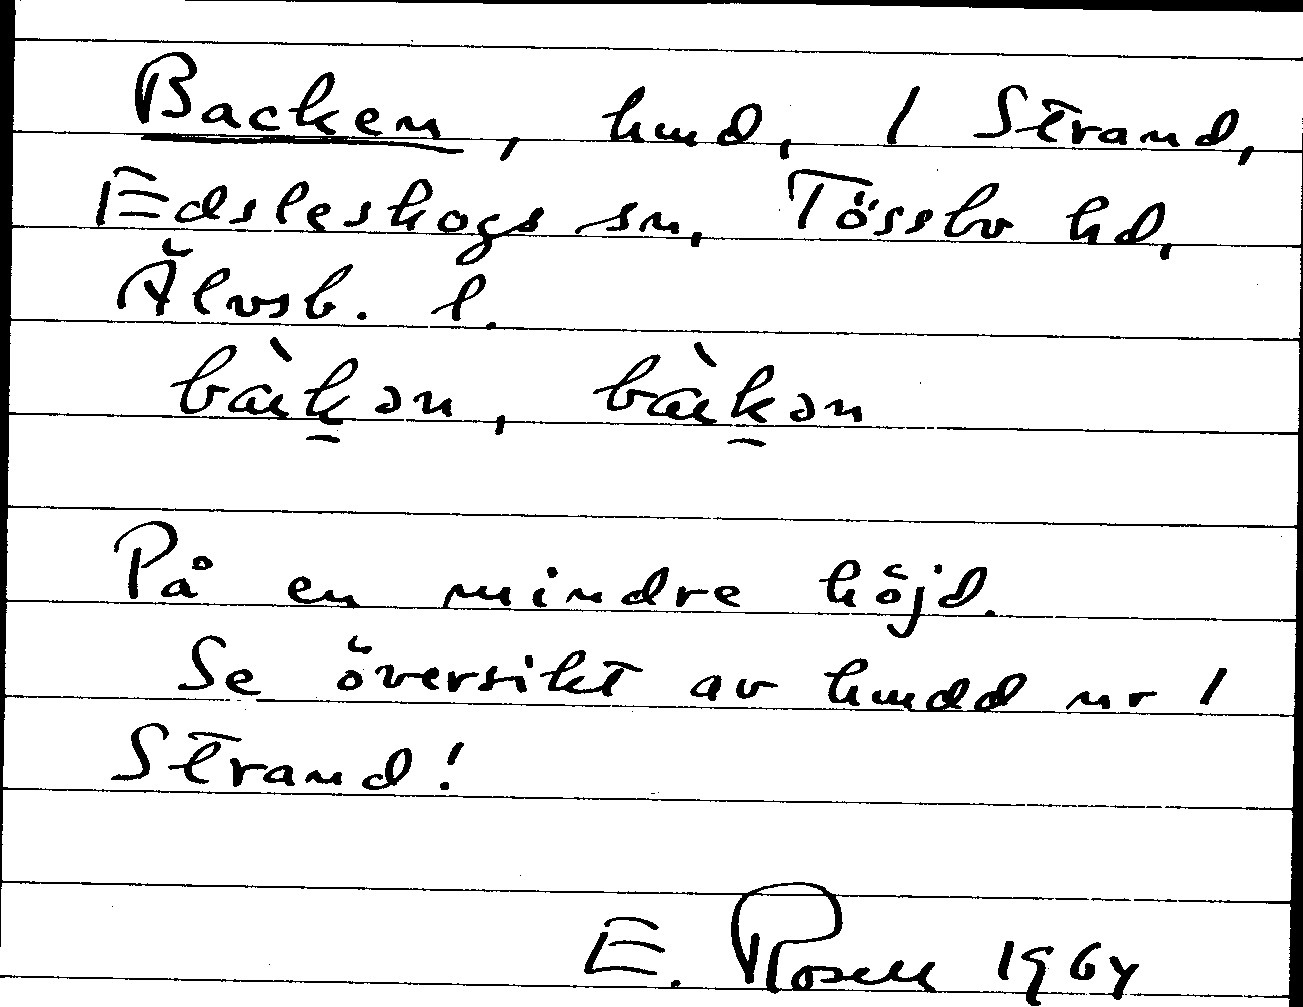 Backen, hmd, 1 Strand,
Edsleskogs sn, Tössbo hd,
Älvsb. l.
På en mindre höjd.
Se översikt av hmdd nr 1
Strand!
E. Rosell 1964